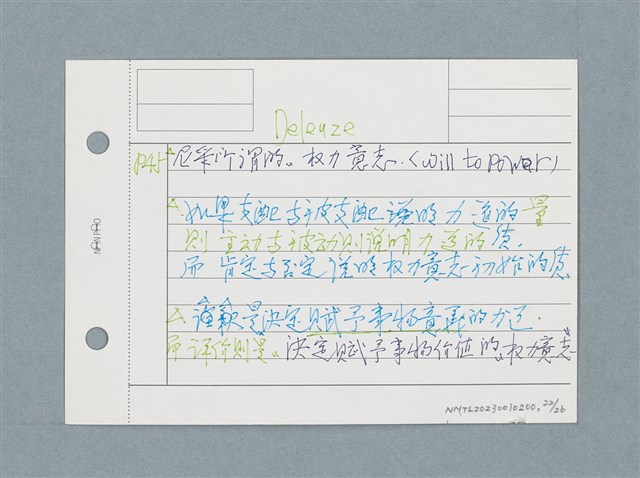 Deleuze
P45 △尼采所谓的“权力意志”.(Will to power)
△.如果支配与被支配说明力道的量
则主动与被动则说明力道的质.
而肯定与否定说明权力意志初始的质
△诠釈是决定赋予事物意义的力道.
而评价则是“决定赋予事物价值的“权力意志”
MAN PAD
NMTL20230010200, 22/26